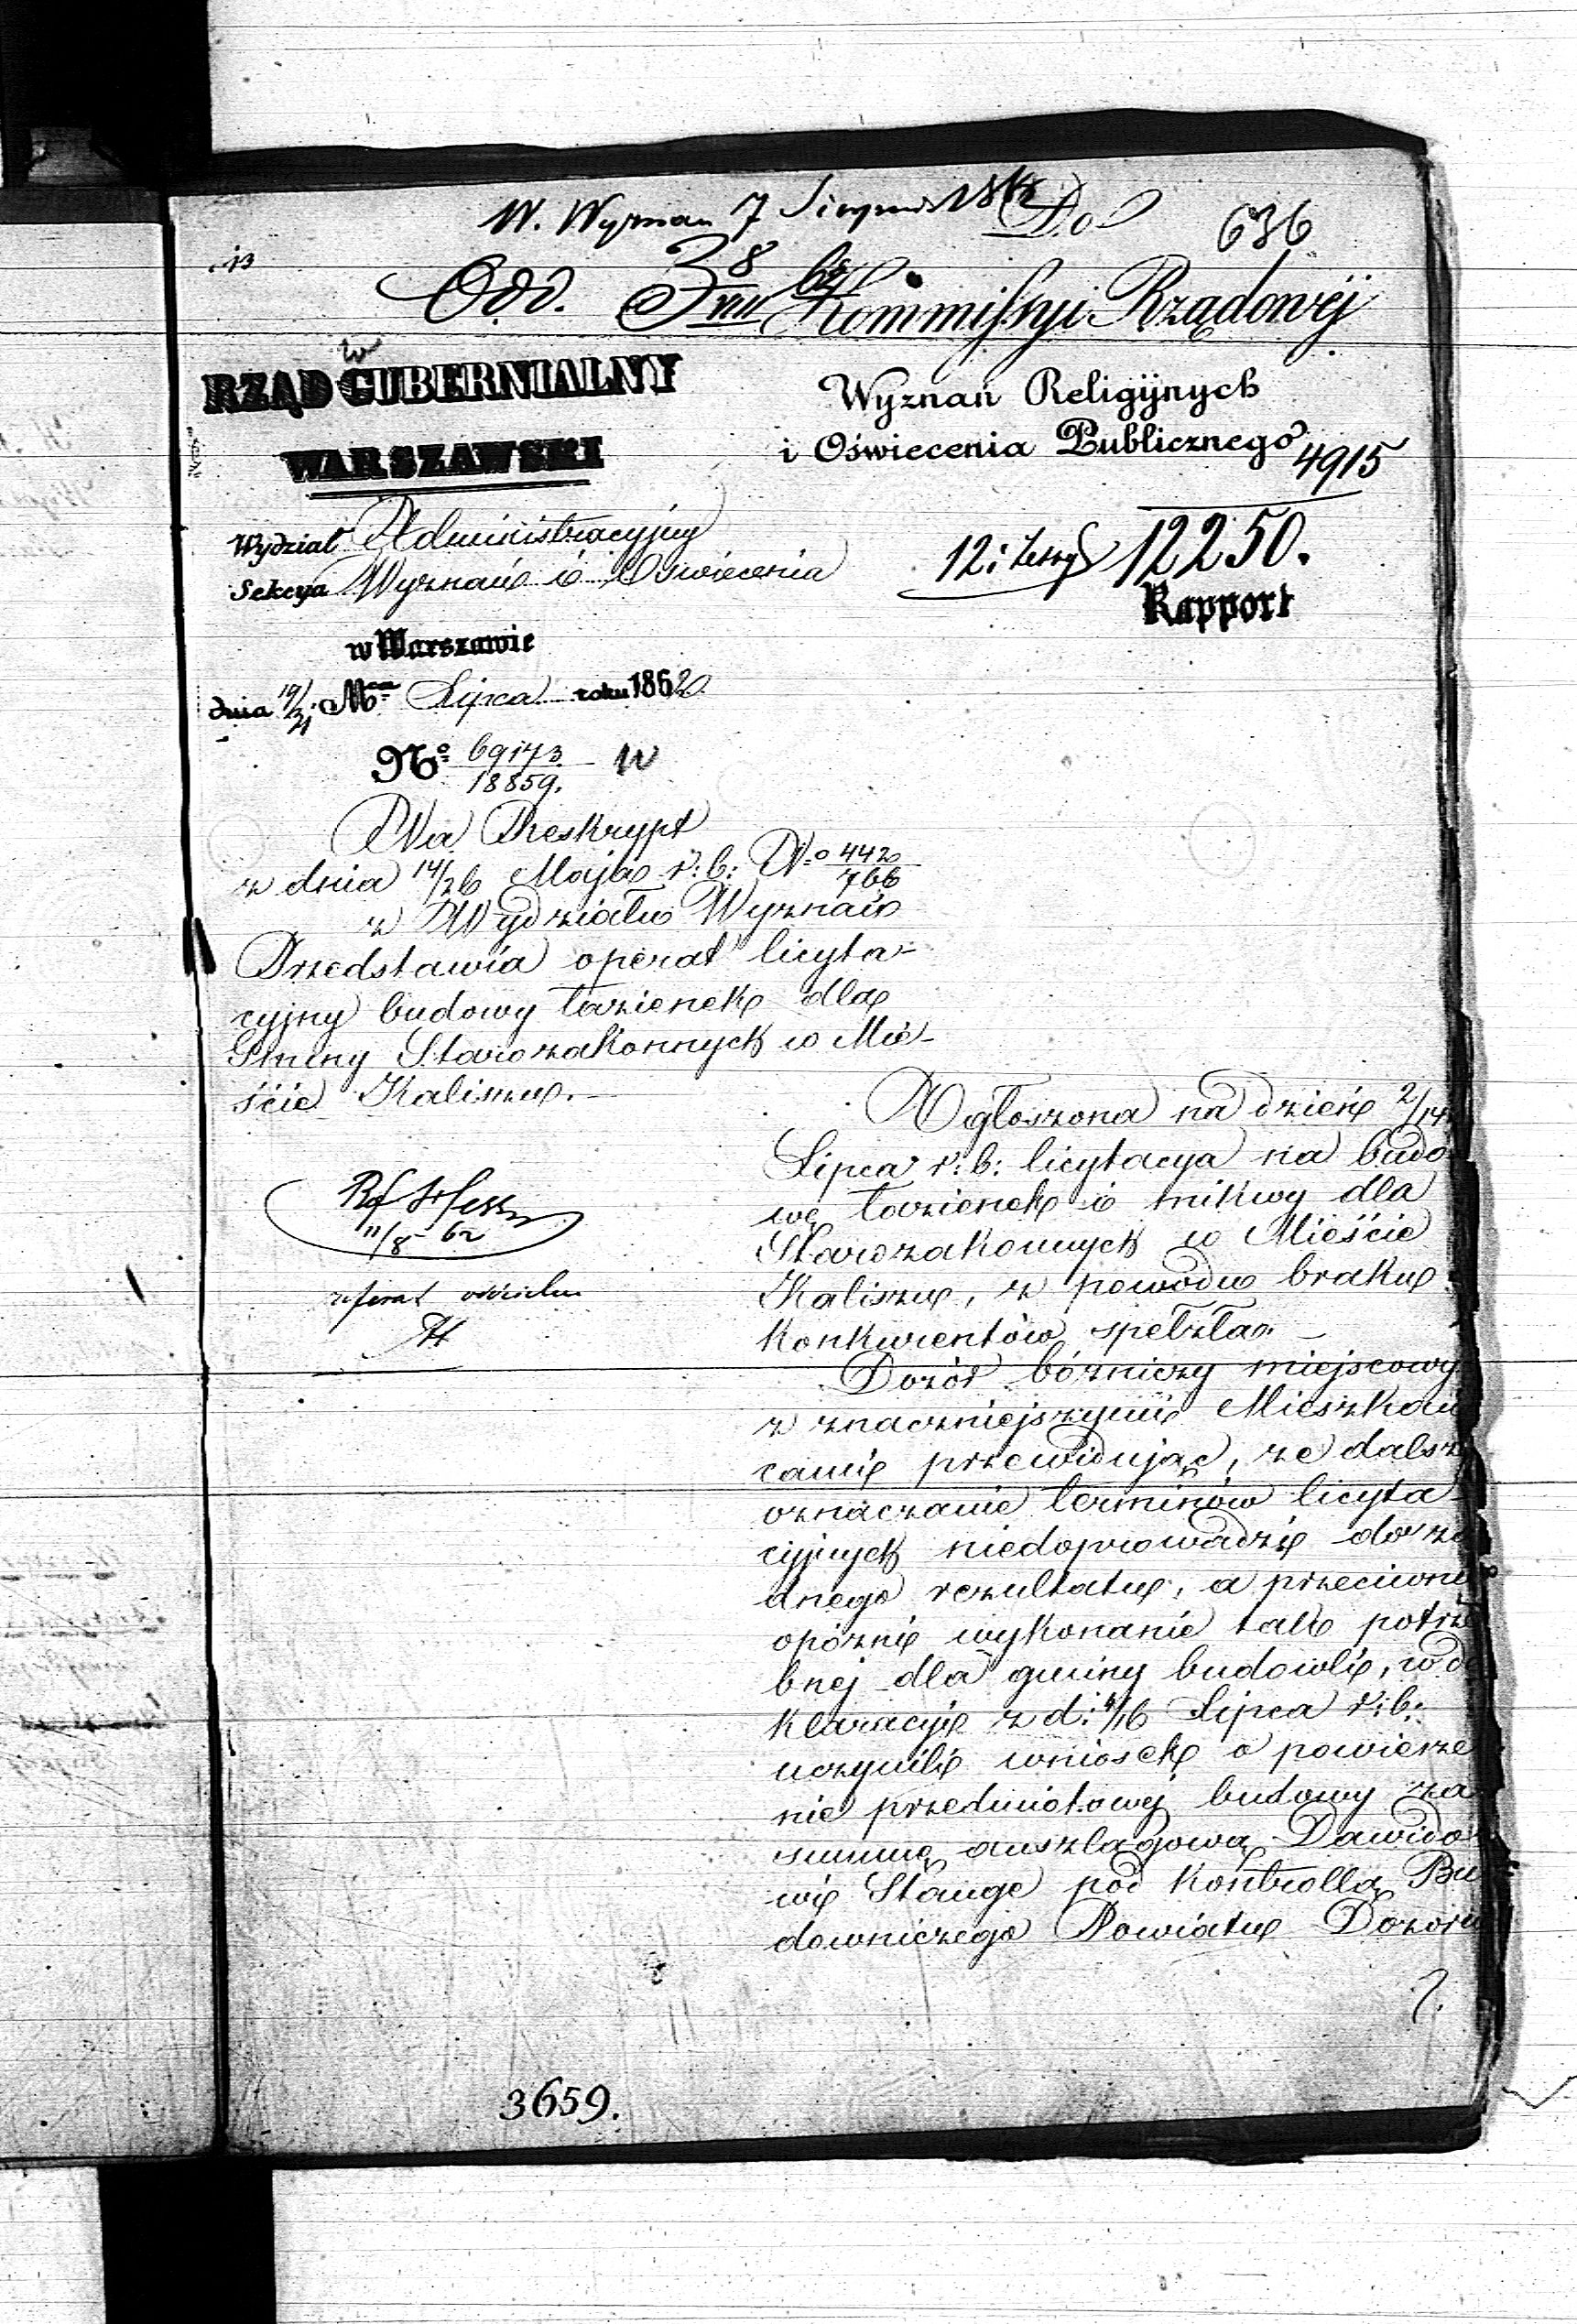 W. Wyznań 7 Sierpnia 1862
Do
636
Odd. 3 8/VIII 62
Kommissyi Rządowéj
RZĄD GUBERNIALNY
WARSZAWSKI
Wyznań Religijnych
i Oświecenia Publicznego
4915
12250.
Rapport
Wydział Administracyjny
Sekcya Wyznań i Oświecenia
w Warszawie
dnia 19/31 Mca Lipca roku 1862
No 69173/18859. W
Na Reskrypt
z dnia 14/26 Maja r: b: No 4420/766
z Wydziału Wyznań
Przedstawia operat licyta-
cyjny budowy łazienek dla
Gminy Starozakonnych w Mie-
ście Kaliszu.
11/8 62
referat oddzielny
Ogłoszona na dzień 2/14
Lipca r: b: licytacya na budo
wę łazienek i mikwy dla
Starozakonnych w Mieście
Kaliszu, z powodu braku
konkurentów spełzła. -
Dozór bóżniczy miejscowy
z znaczniejszymi Mieszkań
cami przewidując, że dalsze
oznaczanie terminów licyta-
cyjnych niedoprowadzi do ża
dnego rezultatu, a przeciwnie
opóźni wykonanie tak potrze
bnej dla gminy budowli, w de
klaracyi z d: 4/16 Lipca r: b:
uczynili wniosek o powierze
nie przedmiotowej budowy za
summę anszlagową Dawido
wi Stange pod kontrollą Bu
downiczego Powiatu Dozoru
3659.